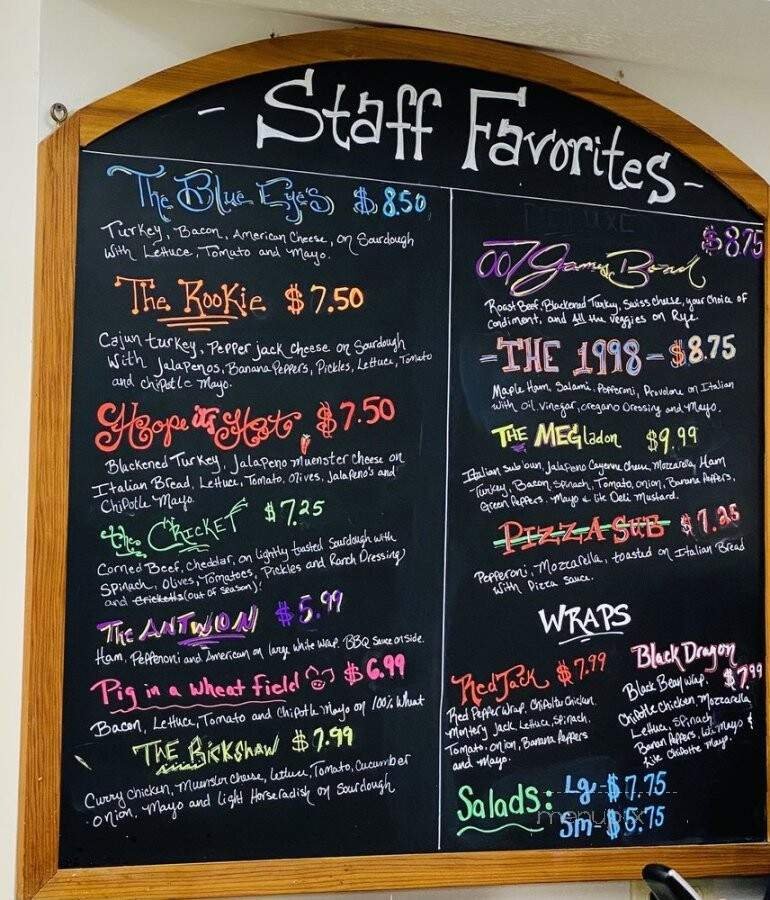 - Staff Favorites -
The Blue Eye's $8.50
Turkey, Bacon, American Cheese, on Sourdough
With Lettuce, Tomato and Mayo.
The Rookie $7.50
Cajun turkey, Pepper jack cheese on Sourdough
With Jalapenos, Banana Peppers, Pickles, Lettuce, Tomato
and chipotle Mayo.
Hope its Hot $7.50
Blackened Turkey, Jalapeno muenster cheese on
Italian Bread, Lettuce, Tomato, olives, Jalapeno's and
Chipotle Mayo.
the Cricket $7.25
Corned Beef, cheddar, on lightly toasted Sourdough with
Spinach, olives, Tomatoes, Pickles and Ranch Dressing
and Cricketts (out of season)!
The ANTWON $5.99
Ham, Pepperoni and American on large white wrap. BBQ sauce on side.
Pig in a wheat field $6.99
Bacon, Lettuce, Tomato and Chipotle Mayo on 100% Wheat
The Rickshaw $7.99
Curry chicken, Muenster cheese, lettuce, Tomato, Cucumber
onion, Mayo and light Horseradish on Sourdough
DELUXE
$8.75
007 James Bond
Roast Beef, Blackened Turkey, Swiss cheese, your choice of
Condiment, and All the veggies on Rye
- THE 1998 - $8.75
Maple Ham, Salami, Pepperoni, Provolone on Italian
with oil, vinegar, oregano Dressing and Mayo.
THE MEGladon $9.99
Italian Sub bun, Jalapeno Cayenne cheese, Mozzarella, Ham
Turkey, Bacon, Spinach, Tomato, onion, Banana Peppers,
Green Peppers. Mayo & lik Deli Mustard.
PIZZA SUB $7.25
Pepperoni, Mozzarella, toasted on Italian Bread
With Pizza Sauce.
WRAPS
Red Jack $7.99
Red Pepper wrap. Chipotle Chicken
Montery Jack, Lettuce, Spinach,
Tomato, onion, Banana Peppers
and Mayo.
Black Dragon
$7.99
Black Bean wrap.
Chipotle Chicken Mozzarella
Lettuce, Spinach
Banan Peppers, Mayo &
like Chipotle Mayo.
Salads: Lg - $7.75
Sm - $5.75
menupix